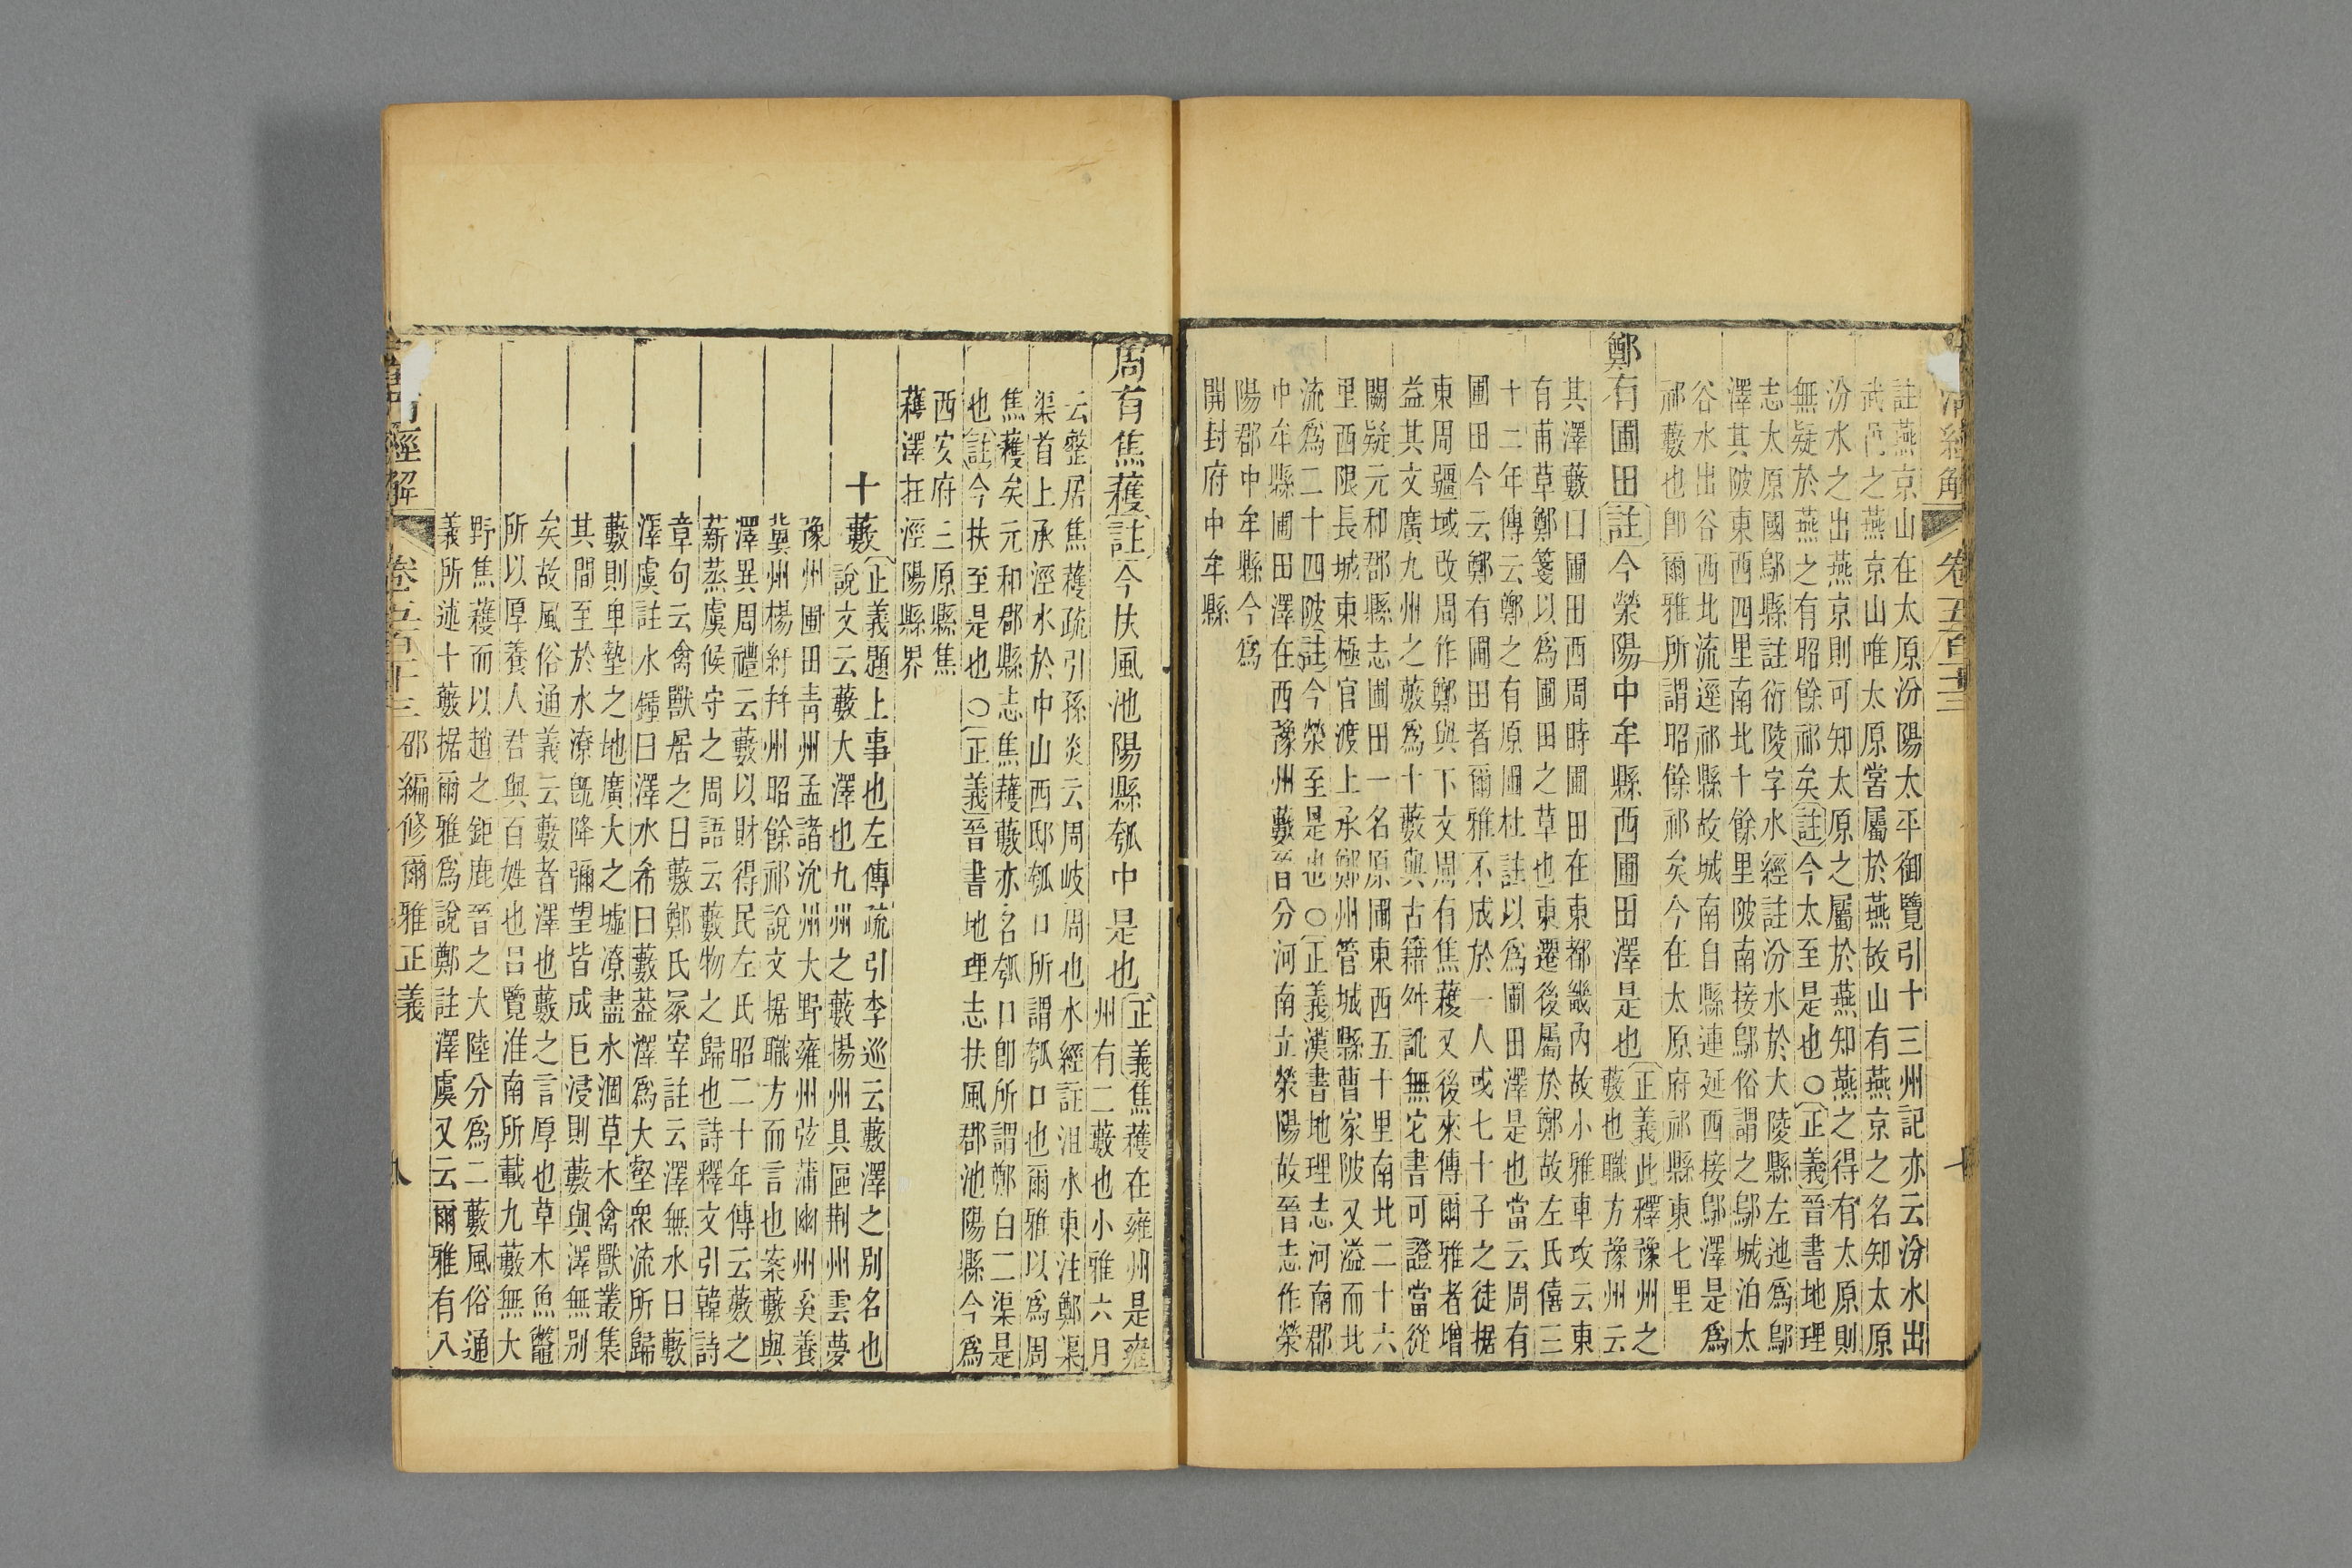 清經解
卷五百十三
七
註燕京山在太原汾陽太平御覽引十三州記亦云汾水出
武邑之燕京山唯太原當屬於燕故山有燕京之名知太原
汾水之出燕京則可知太原之屬於燕知燕之得有太原則
無疑於燕之有昭餘祁矣註今太至是也○正義晉書地理
志太原國鄔縣註衍陵字水經註汾水於大陵縣左迆爲鄔
澤其陂東西四里南北十餘里陂南接鄔俗謂之鄔城泊太
谷水出谷西北流逕祁縣故城南自縣連延西接鄔澤是爲
祁藪也卽爾雅所謂昭餘祁矣今在太原府祁縣東七里
鄭有圃田註今滎陽中牟縣西圃田澤是也
正義此釋豫州之
藪也職方豫州云
其澤藪曰圃田西周時圃田在東都畿內故小雅車攻云東
有甫草鄭箋以爲圃田之草也東遷後屬於鄭故左氏僖三
十二年傳云鄭之有原圃杜註以爲圃田澤是也當云周有
圃田今云鄭有圃田者爾雅不成於一人或七十子之徒据
東周疆域改周作鄭與下文周有焦穫又後來傳爾雅者增
益其文廣九州之藪爲十藪與古籍舛訛無它書可證當從
闕疑元和郡縣志圃田一名原圃東西五十里南北二十六
里西限長城東極官渡上承鄭州管城縣曹家陂又溢而北
流爲二十四陂註今滎至是也○正義漢書地理志河南郡
中牟縣圃田澤在西豫州藪晉分河南立滎陽故晉志作滎
陽郡中牟縣今爲
開封府中牟縣
周有焦穫註今扶風池陽縣瓠中是也
正義焦穫在雍州是雍
州有二藪也小雅六月
云整居焦穫疏引孫炎云周岐周也水經註沮水東注鄭渠
渠首上承涇水於中山西邸瓠口所謂瓠口也爾雅以爲周
焦穫矣元和郡縣志焦穫藪亦名瓠口卽所謂鄭白二渠是
也註今扶至是也○正義晉書地理志扶風郡池陽縣今爲
西安府三原縣焦
穫澤在涇陽縣界
十藪
正義題上事也左傳疏引李巡云藪澤之別名也
說文云藪大澤也九州之藪揚州具區荆州雲夢
豫州圃田靑州孟諸沇州大野雍州弦蒲幽州奚養
冀州楊紆幷州昭餘祁說文据職方而言也案藪與
澤異周禮云藪以財得民左氏昭二十年傳云藪之
薪蒸虞候守之周語云藪物之歸也詩釋文引韓詩
章句云禽獸居之曰藪鄭氏冢宰註云澤無水曰藪
澤虞註水鍾曰澤水希曰藪葢澤爲大壑衆流所歸
藪則卑墊之地廣大之墟潦盡水涸草木禽獸叢集
其間至於水潦旣降彌望皆成巨浸則藪與澤無別
矣故風俗通義云藪者澤也藪之言厚也草木魚鼈
所以厚養人君與百姓也呂覽淮南所載九藪無大
野焦穫而以趙之鉅鹿晉之大陸分爲二藪風俗通
義所述十藪据爾雅爲說鄭註澤虞又云爾雅有八
經解
卷五百十三
邵編修爾雅正義
八